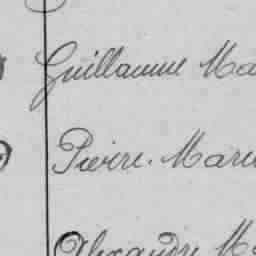 Guillaume Ma
Pierre. Marie
Alexandre Ma